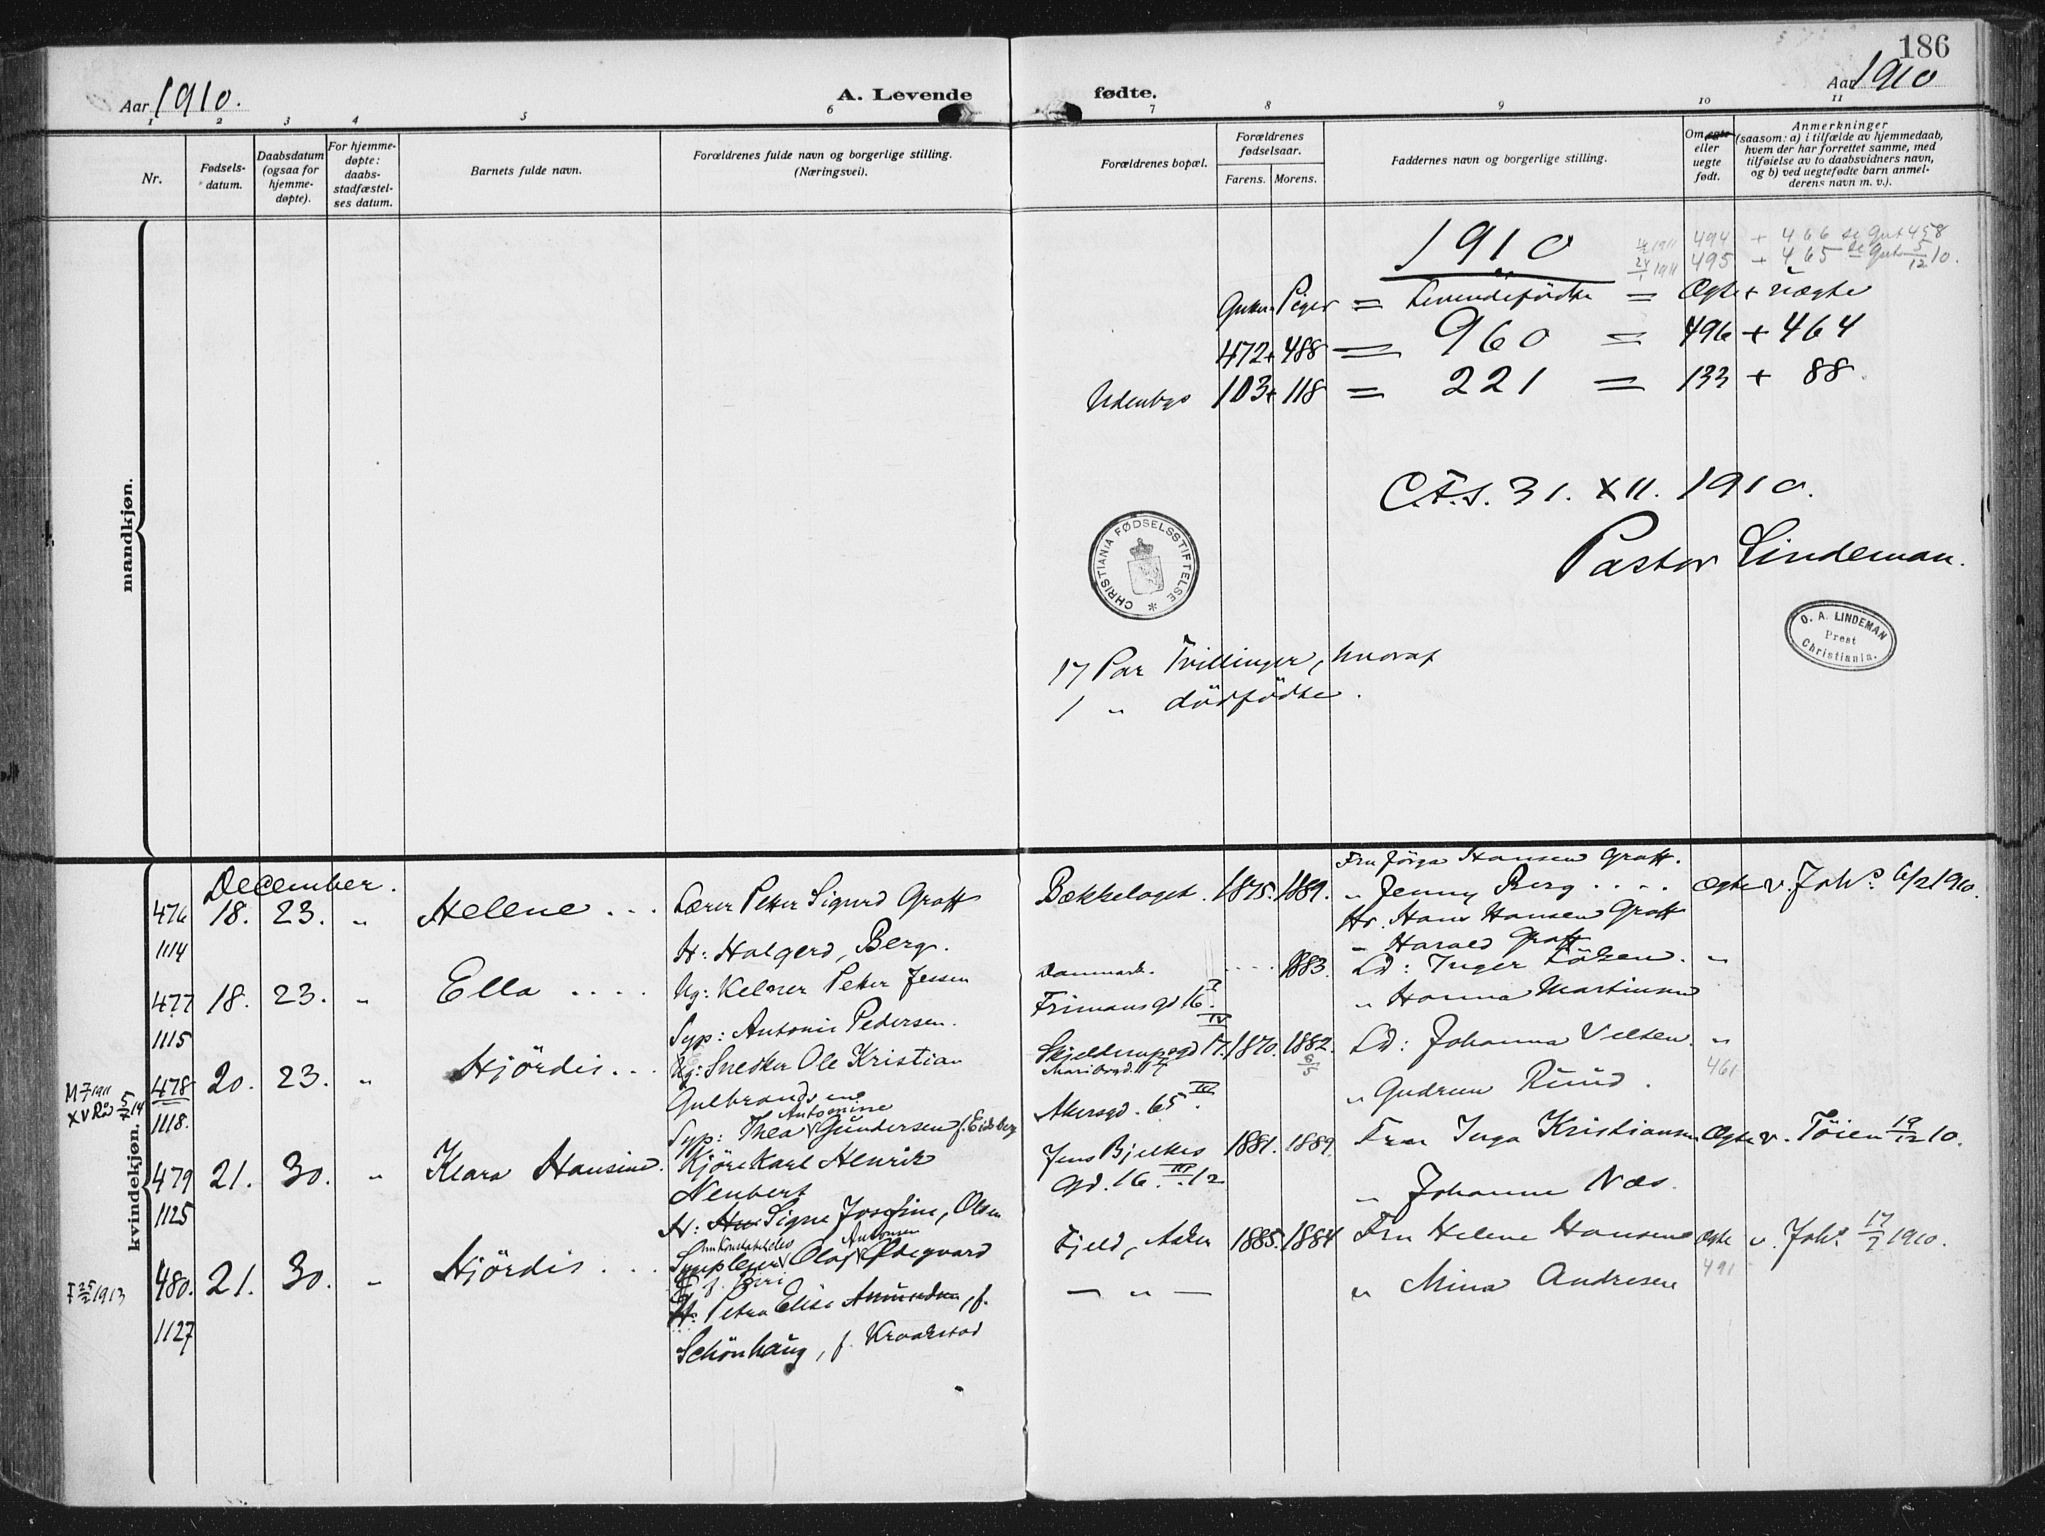 186
Aar 1910.
A. Levende fødte.
Aar 1910
1 2 3 4 5 6 7 8 9 10 11
Nr.
Fødsels-
datum.
Daabsdatum
(ogsaa for
hjemme-
døpte).
For hjemme-
døpte:
daabs-
stadfæstel-
ses datum.
Barnets fulde navn.
Forældrenes fulde navn og borgerlige stilling.
(Næringsvei).
Forældrenes bopæl.
Forældrenes
fødselsaar.
Farens. Morens.
Faddernes navn og borgerlige stilling.
Om egte
eller
uegte
født.
Anmerkninger
(saasom: a) i tilfælde av hjemmedaab,
hvem der har forrettet samme, med
tilføielse av to daabsvidners navn,
og b) ved uegtefødte barn anmel-
derens navn m. v.).
mandkjøn.
1910
494 + 466 se Gut 458
495 + 465 se Gut 5/12 10.
Gutter Piger = Levendefödte = Ægte + Uægte
472 + 488 = 960 = 496 + 464
Udenbys 103 + 118 = 221 = 133 + 88.
C.F.S. 31. XII. 1910.
Pastor Lindeman.
CHRISTIANIA FØDSELSSTIFTELSE
O. A. LINDEMAN
Prest
Christiania.
17 Par Tvillinger, hvoraf
1 " dödfödte.
kvindekjøn.
December.
476 18. 23. " Helene . . . Lærer Peter Sigurd Graff Bækkelaget. 1875. 1889. Fru Jörga Hansen Graff. Ægte v. Joh's. 6/2 1910.
" Jenny Berg . . . .
Hr. Hans Hansen Graff
1114 H: Holgerd, Berg. " Harald Graff
477 18. 23. " Ella . . . . Ug: Kelner Peter Jessen Danmark. . . . . 1883. Ld: Inger "
1115 Syp: Antonie Pedersen. Frimansgd 16 IV " Hanna Martinsen
478 20. 23. " Hjördis . . . Ug: Snedker Ole Kristian Skjelderupsgd 17. 1870. 1882. Ld: Johanna "
8/5
461
Gulbrandsen
1118. Syp: Thea Antonine Gundersen f. Eidsberg Akersgd. 65 III. " Gudrun Ruud.
479 21. 30. " Klara Hansine. Kjörekarl Henrik Jens Bjelkes 1881. 1889. Fru Inga Kristiansen Ægte v. Töien 19/12 10.
Neubert gd. 16. III. 12 " Johanne Næs.
1125 H: Signe Josefine, Olsen
480. 21. 30. " Hjördis . . . Olaf Antonsen Ödegaard Fjeld, Aker 1885. 1884 Fru Helene Hansen Ægte v. Joh's 17/7 1910.
f. Biri
491
H: Petra Elise Amundsen, f. — " — " Mina Andresen
1127 Schönhaug, f. Kraakstad
† 25/2 1913